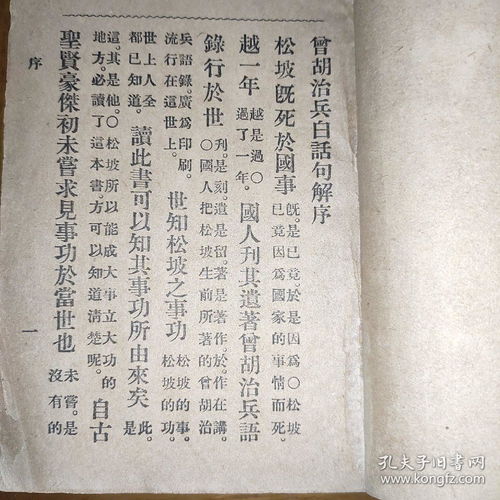 曾胡治兵白話句解序
松坡旣死於國事旣。是已竟。於是因爲〇松坡已竟因爲國家的事情而死。
越一年越是過〇過了一年。國人刋其遺著曾胡治兵語
錄行於世刋。是刻。遺是留。著是著作。於。作在講。〇國人把松坡生前所著的曾胡治
兵語錄。廣爲印刷。流行在這世上。世知松坡之事功松坡的事。松坡的功。
世上人全都已知道。讀此書可以知其事功所由來矣此。是
這。其。是他。〇松坡所以能成大事立大功的地方。必讀了這本書。方可以知道清楚呢。自古
聖賢豪傑初未嘗求見事功於當世也未嘗。是沒有的
序
一
孔夫子旧书网
www.kongfz.com